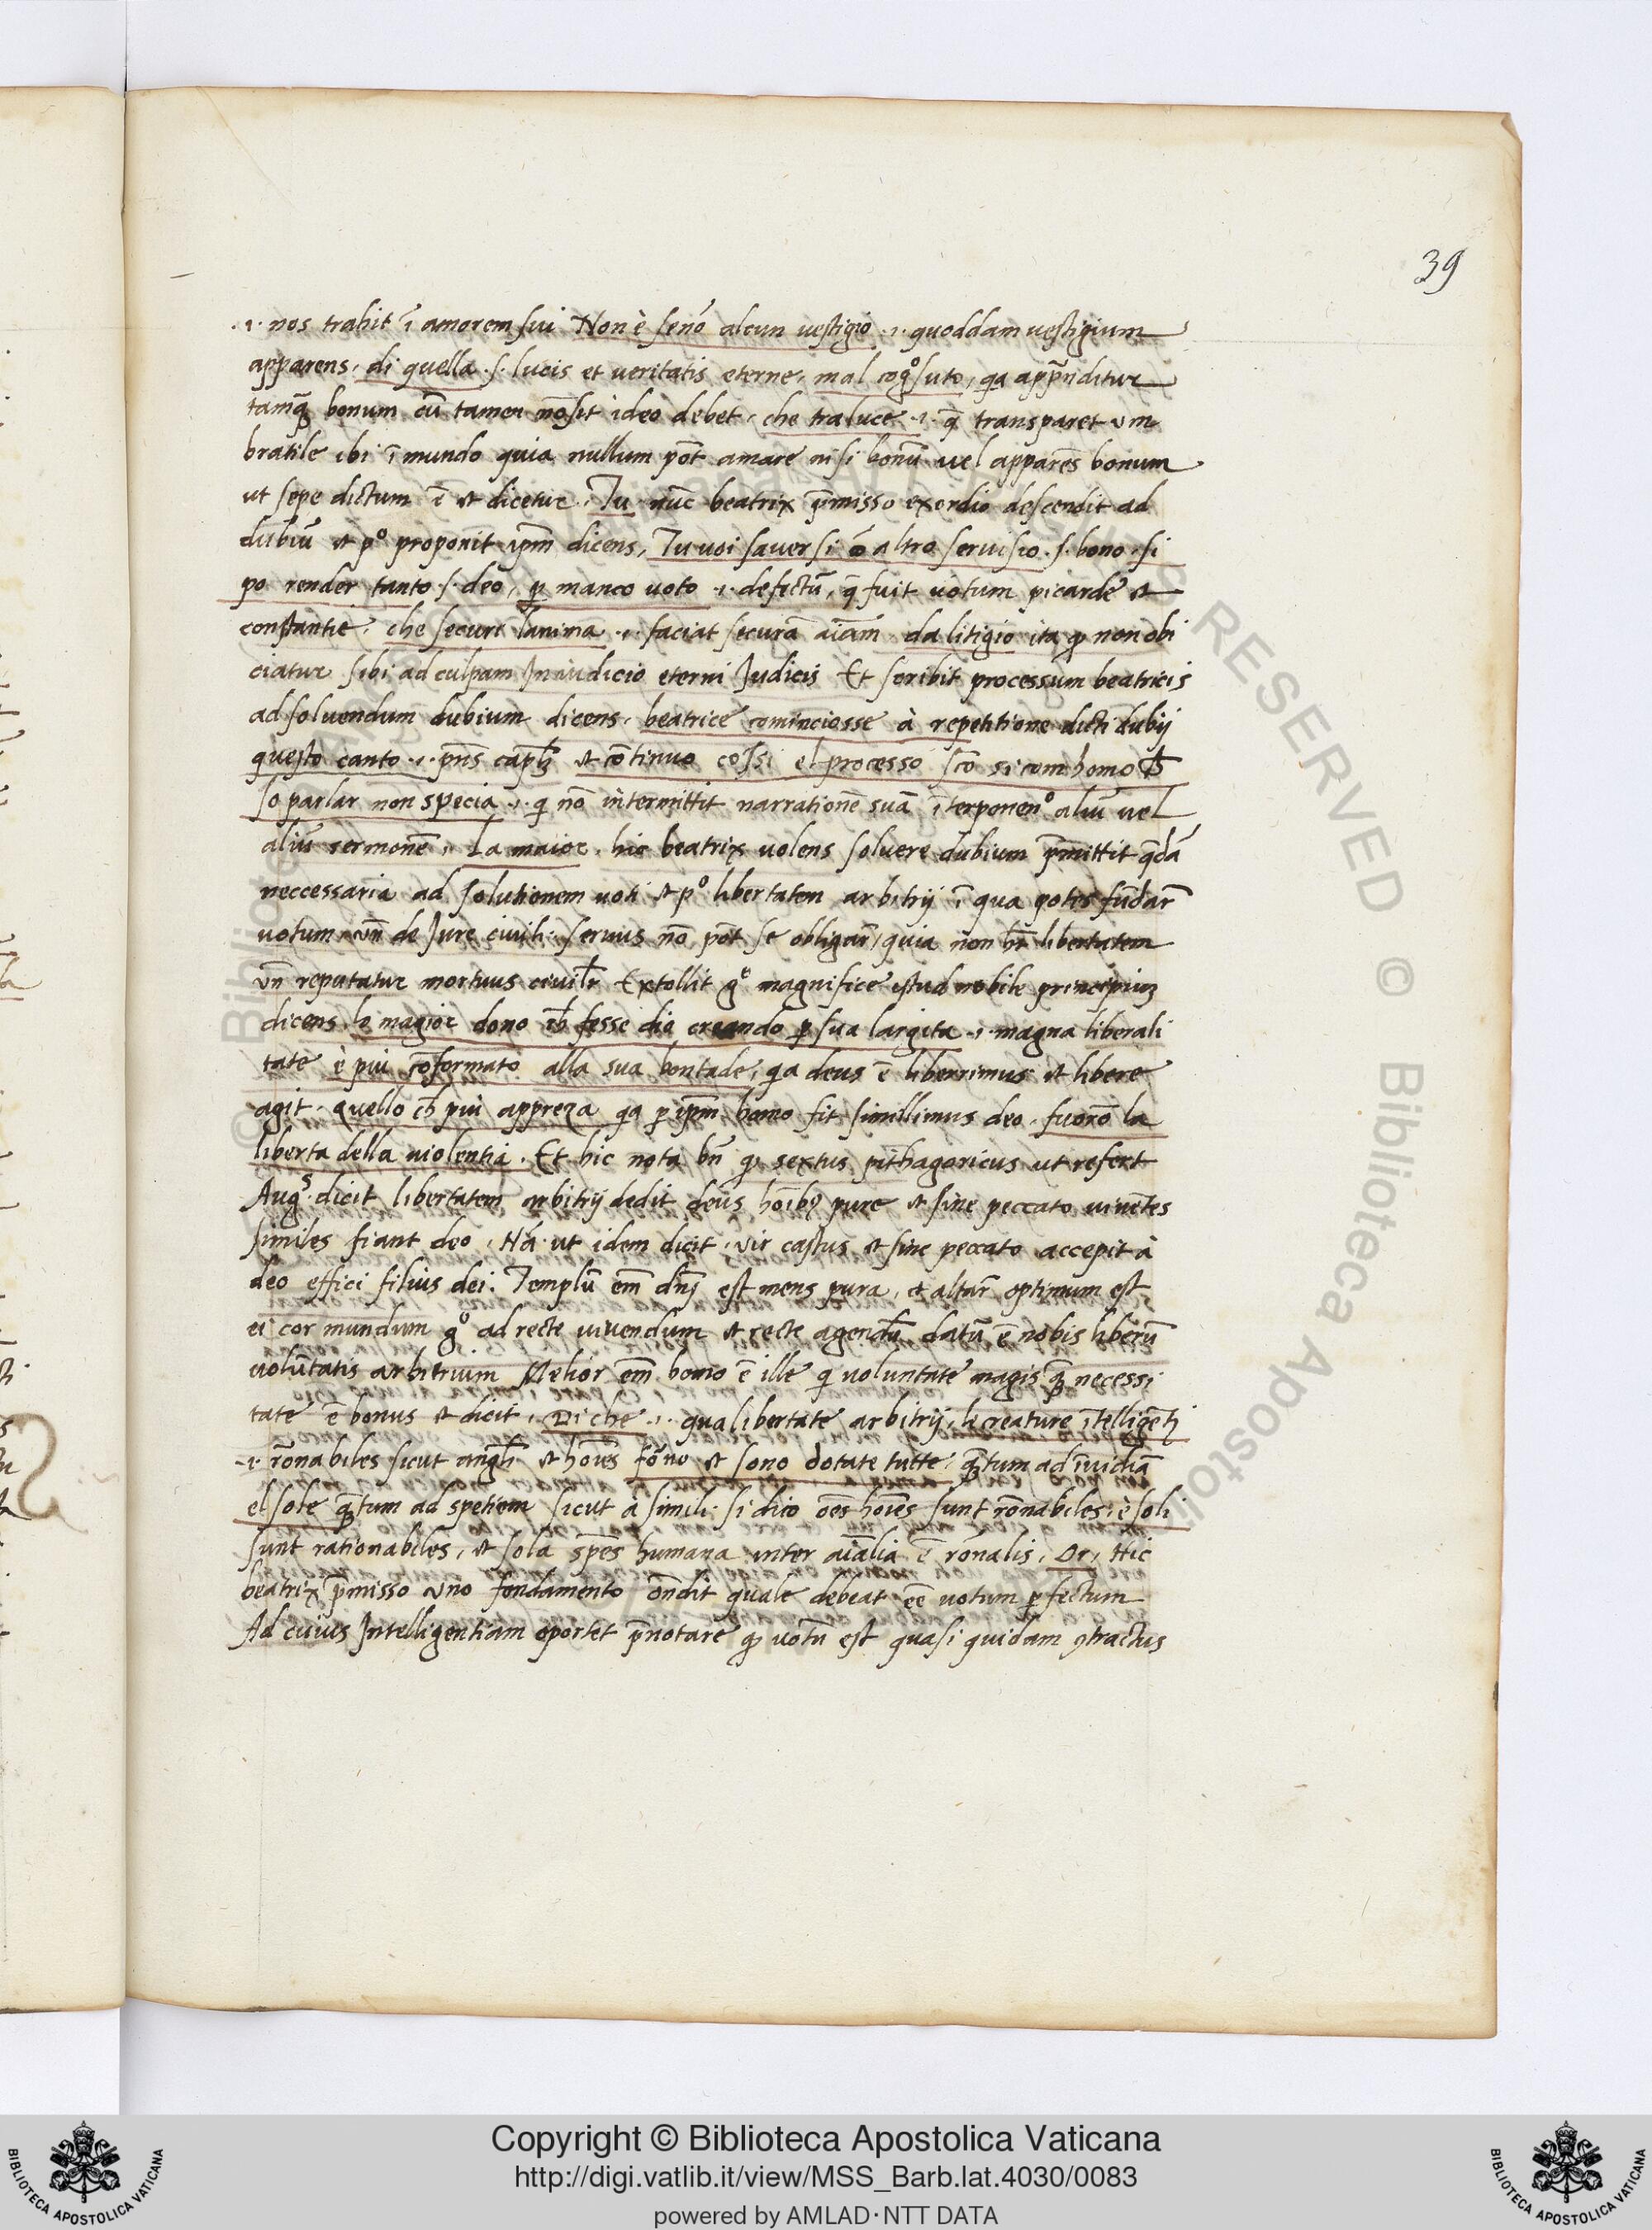 39
.i. nos trahit ī amorem sui Non è senō alcun vestigio .i. quoddam vestigium
apparens. di quella .s. lucis et veritatis eterne. mal cogͦsuto, qa app̄nditur
tamq̄ bonum cū tamen nōsit ideo debet. che traluce .i. q̄ transparet um
bratile ibi ī mundo quia nullum pōt amare nisi bonū vel apparēs bonum
ut sepe dictum ē et dicetur. Tu nūc beatrix p̄misso exordio descendit ad
dubiū et pͦ proponit ip̄m dicens, Tu voi saver si ō altro servisio .s. bono. si
po render tanto .s. deo, ꝑ manco voto .i. defectū, q̄ fuit votum picarde et
constantie. che securi lanima .i. faciat securā aīam da litigio ita ꝙ non obi
ciatur sibi ad culpam In iudicio eterni Judicis Et scribit processum beatricis
ad solvendum dubium dicens. beatrice cominciosse à repetitione dicti dubij
questo canto .i. pn̄s capl̄ꝫ et cōtinuo cossi el processo sc̄o si com homo cħ
so parlar non specia .i. q nō intermittit narrationē suā īterponenͦ aliū vel
aliū sermonē, La maior. hic beatrix volens solvere dubium p̄mittit q̄dā
neccessaria ad solutionem voti et pͦ libertatem arbitrij ī qua potes fūdar̄
votum, un̄ de Jure civili. servus nō pōt se obligar̄, quia non hт̄ libertatem
un̄ reputatur mortuus civilr̄ Extollit gͦ magnifice istud nobile principiuꝫ
dicens. lo magior dono cħ fesse dio creando ꝑ sua largita .i. magna liberali
tate è piu cōformato alla sua bontade, qa deus ē liberrimus et libere
agit. quello cħ piu appreza qa ꝑ ip̄m homo fit simillimus deo. fuorō la
liberta della violentia. Et hic nota bn̄ ꝙ sextus pithagoricus ut refert
Augˢ. dicit libertatem arbitrij dedit deus hōibꝫ pure et sine peccato vivētes
similes fiant deo. Nā ut idem dicit. vir castus et sine peccato accepit à
deo effici filius dei. Templū em̄ dn̄j est mens pura, et altar̄ optimum est
ei cor mundum gͦ ad recte vivendum et recte agendū datū ē nobis liberū
volūtatis arbitrium Melior em̄ homo ē ille q voluntate magis q̄ necessi
tate ē bonus et dicit. Di che .i. qua libertate arbitrij, le creature ītelligēti
.i. rōnabiles sicut angl̄i et hoīes fōrno et sono dotate tutte. q̄tum ad īvidiā
el sole q̄tum ad spetiem sicut à simili. si dico oēs hoīes sunt rōnabiles. è soli
sunt rationabiles, et sola spēs humana inter aīalia ē rōnalis, Or, Hic
beatrix p̄misso uno fondamento ōndit quale debeat eē votum ꝑfectum
Ad cuius Intelligentiam oportet p̄notare ꝙ votū est quasi quidam ꝯtractus
Copyright © Biblioteca Apostolica Vaticana
http://digi.vatlib.it/view/MSS_Barb.lat.4030/0083
powered by AMLAD·NTT DATA